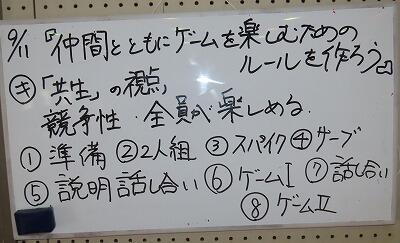 9/11 『仲間とともにゲームを楽しむための
ルールを作ろう』
㋖「共生」の視点
競争性・全員が楽しめる.
① 準備 ②2人組 ③スパイク ④サーブ
⑤ 説明話し合い ⑥ ゲームⅠ ⑦話し合い
⑧ ゲームⅡ